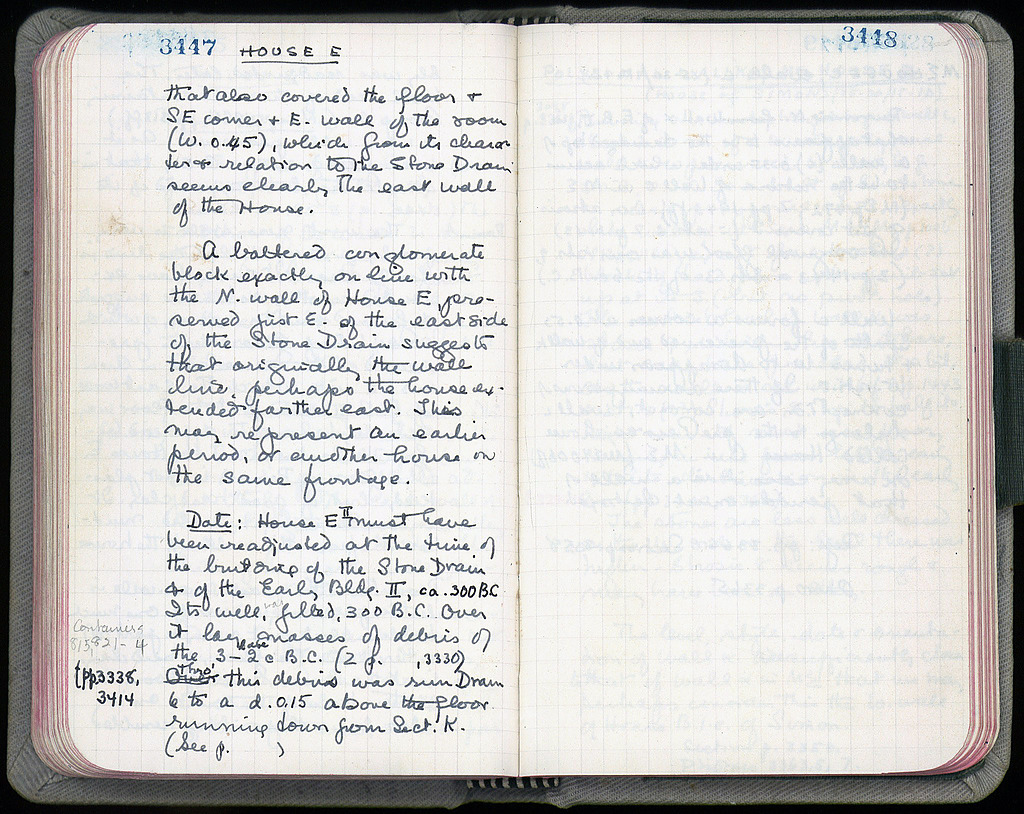 3447 HOUSE E
that also covered the floor +
SE corner + E. wall of the room
(W. 0.45), which from its charac-
ter + relation to the Stone Drain
seems clearly the east wall
of the House.
A battered conglomerate
block exactly on line with
the N. wall of House E pre-
served just E. of the east side
of the Stone Drain suggests
that originally the wall
line, perhaps the house ex-
tended farther east. This
may represent an earlier
period, or another house on
the same frontage.
Date: House E II must have
been readjusted at the time of
the building of the Stone Drain
+ of the Early Bldg. II, ca. 300 BC
Its well, was filled, 300 B.C. Over
it lay masses of debris of
the 3 - late 2 c B.C. (2 f. , 3330)
Over thro' this debris was run Drain
6 to a d. 0.15 above the floor
running down from Sect. K.
(See p. )
Containing
8/5821-4
(pp3338,
3414
3448